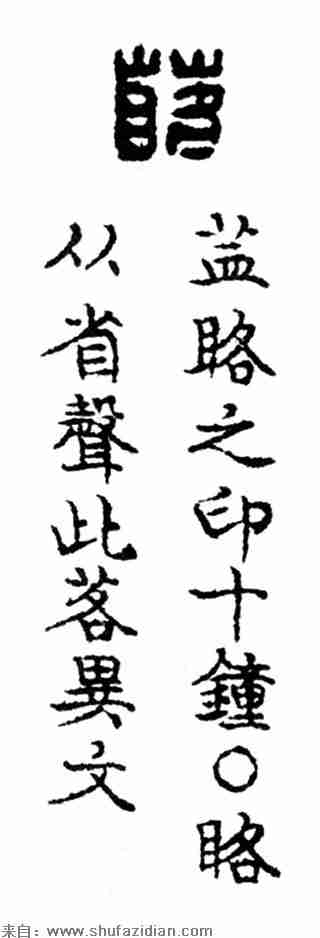 䀩之印十鐘○䀩
从省聲此茖異文
来自：www.shufazidian.com